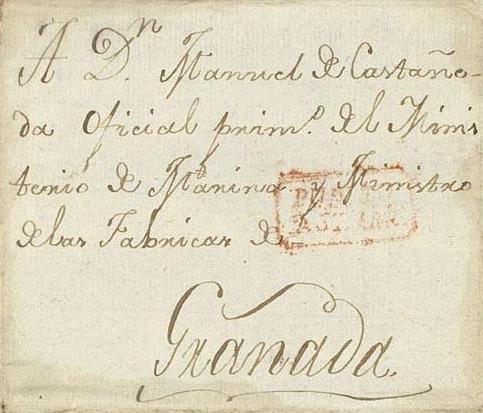 A Dn. Manuel de Castaño-
da Oficial primo. del Minis
terio de Marina y Ministro
de las Fabricas de
Granada.